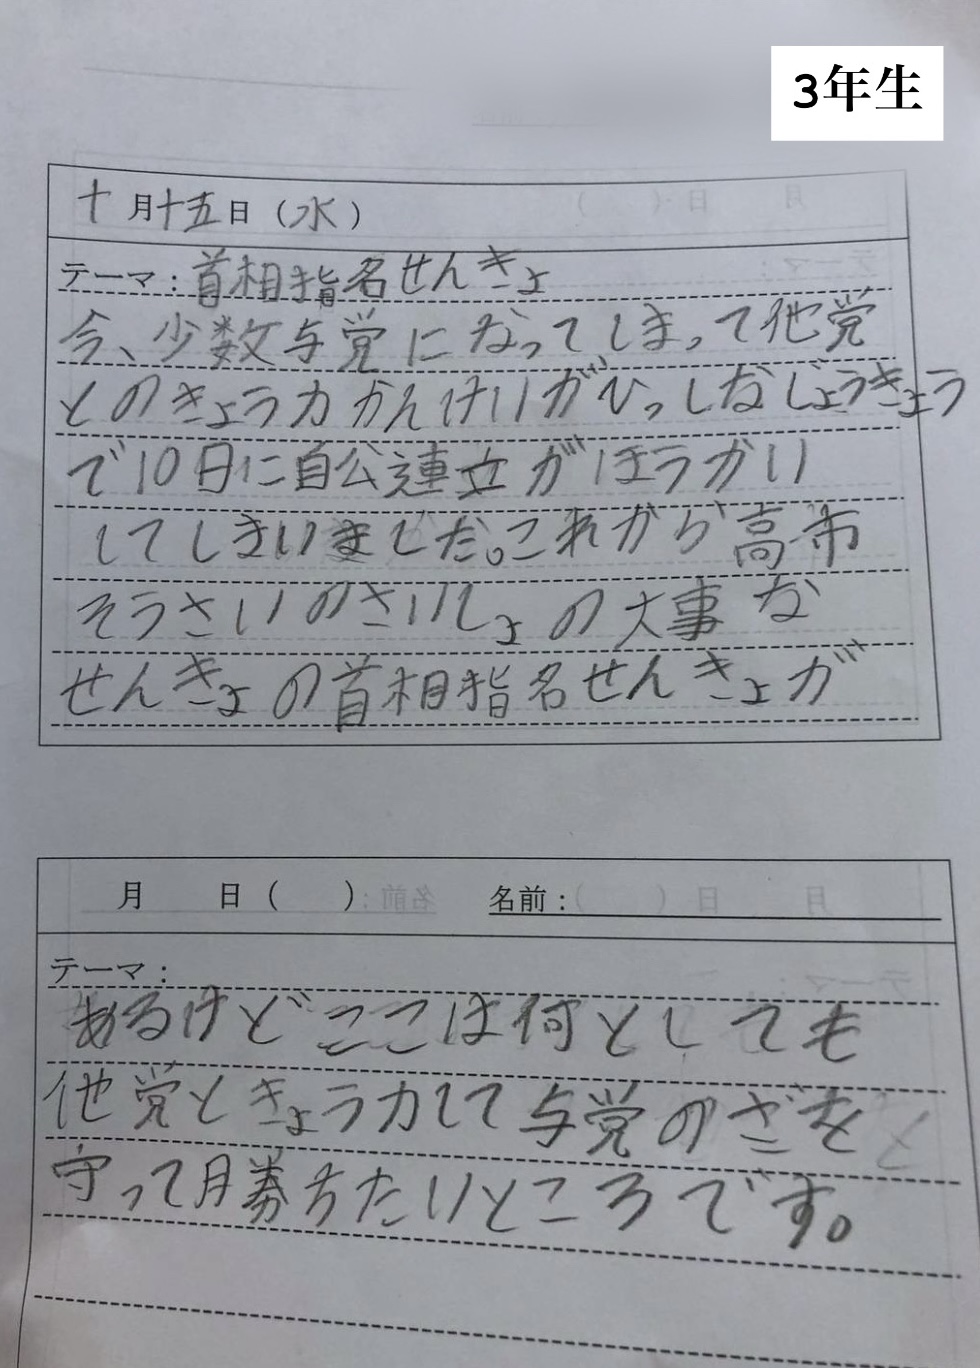 3年生
十月十五日（水）
テーマ：首相指名せんきょ
今、少数与党になってしまって他党
とのきょう力かんけいがひっしなじょうきょう
で10日に自公連立がほうかい
してしまいました。これから高市
そうさいのさいしょの大事な
せんきょの首相指名せんきょが
月　日（　）　名前：
テーマ：
あるけどここは何としても
他党ときょう力して与党のざを
守って勝ちたいところです。